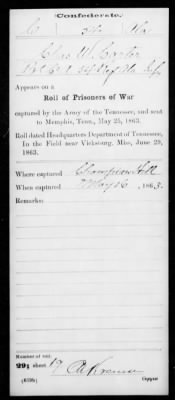 Confederate.
34 Ala
Chas W
Appears on a
Roll of Prisoners of War
captured by the Army of the Tennessee, and sent
to Memphis, Tenn., May 25, 1863.
Roll dated Headquarters Department of Tennessee,
In the Field near Vicksburg, Miss, June 29,
1863.
Where captured Champion Hill
When captured May 16, 1863.
Remarks:
Number of roll:
291 sheet 19
(639b) Copyist